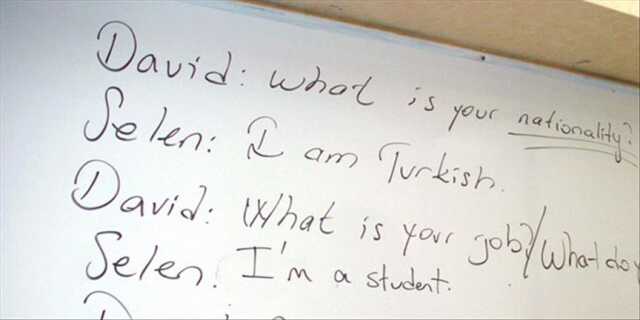 David: what is your nationality?
Selen: I am Turkish.
David: What is your job?/What do
Selen: I'm a student.